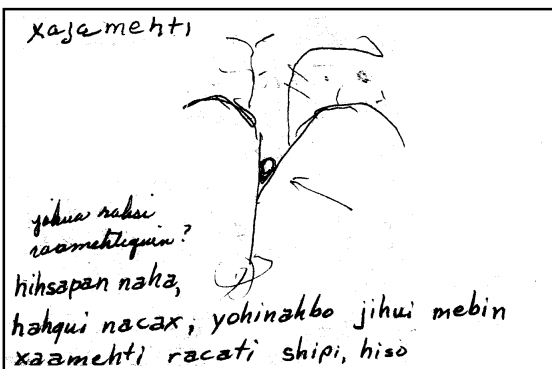 xaja mehti
jihua rahsi
raamehtiquin?
hihsapan naha,
hahqui nacax, yohinahbo jihui mebin
xaamehti racati shipi, hiso